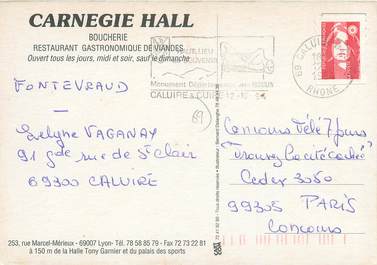 CARNEGIE HALL
BOUCHERIE
RESTAURANT GASTRONOMIQUE DE VIANDES
Ouvert tous les jours, midi et soir, sauf le dimanche
FONTEVRAUD
Evelyne VAGANAY
91 gde rue de St Clair
69300 CALUIRE
69
253, rue Marcel-Mérieux - 69007 Lyon - Tél. 78 58 85 79 - Fax 72 73 22 81
à 150 m de la Halle Tony Garnier et du palais des sports
Monument Départemental
CALUIRE & CUIRE
69 CALUIRE
RHONE
Concours Télé 7 jours
"Trouvez la cité cachée"
Cedex 3050
99305 PARIS
Concours